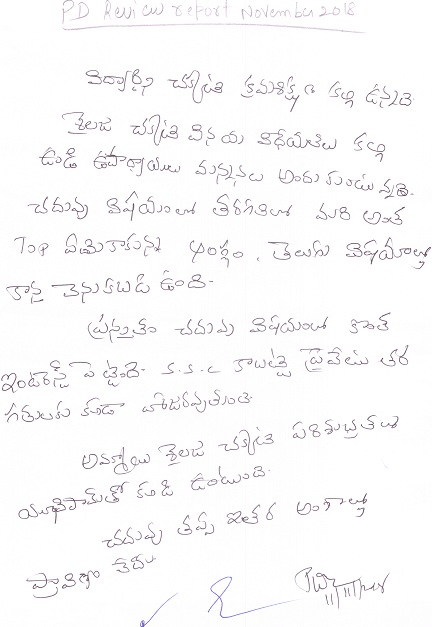 PD Review report November 2018
విద్యార్థిని చక్కటి క్రమశిక్షణ కల్గి ఉన్నది
శైలజ చక్కటి వినయ విధేయతలు కల్గి
ఉండి ఉపాధ్యాయుల మన్ననలు అందుకుంటున్నది.
చదువు విషయంలో తరగతిలో మరి అంత
Top ఏమికాకున్న ఆంగ్లం, తెలుగు విషయాల్లో
కాస్త వెనుకబడి ఉంది.
ప్రస్తుతం చదువు విషయంలో కొంత
ఇంటరెస్ట్ పెట్టింది. S.S.C కాబట్టి ప్రైవేటు తర
గతులకు కూడా హాజరవుతుంది
అమ్మాయి శైలజ చక్కటి పరిశుభ్రతలు
యూనిఫామ్‌తో కూడి ఉంటుంది.
చదువు తప్ప ఇతర అంశాల్లో
ప్రావీణ్యం లేదు.
11/11/2018